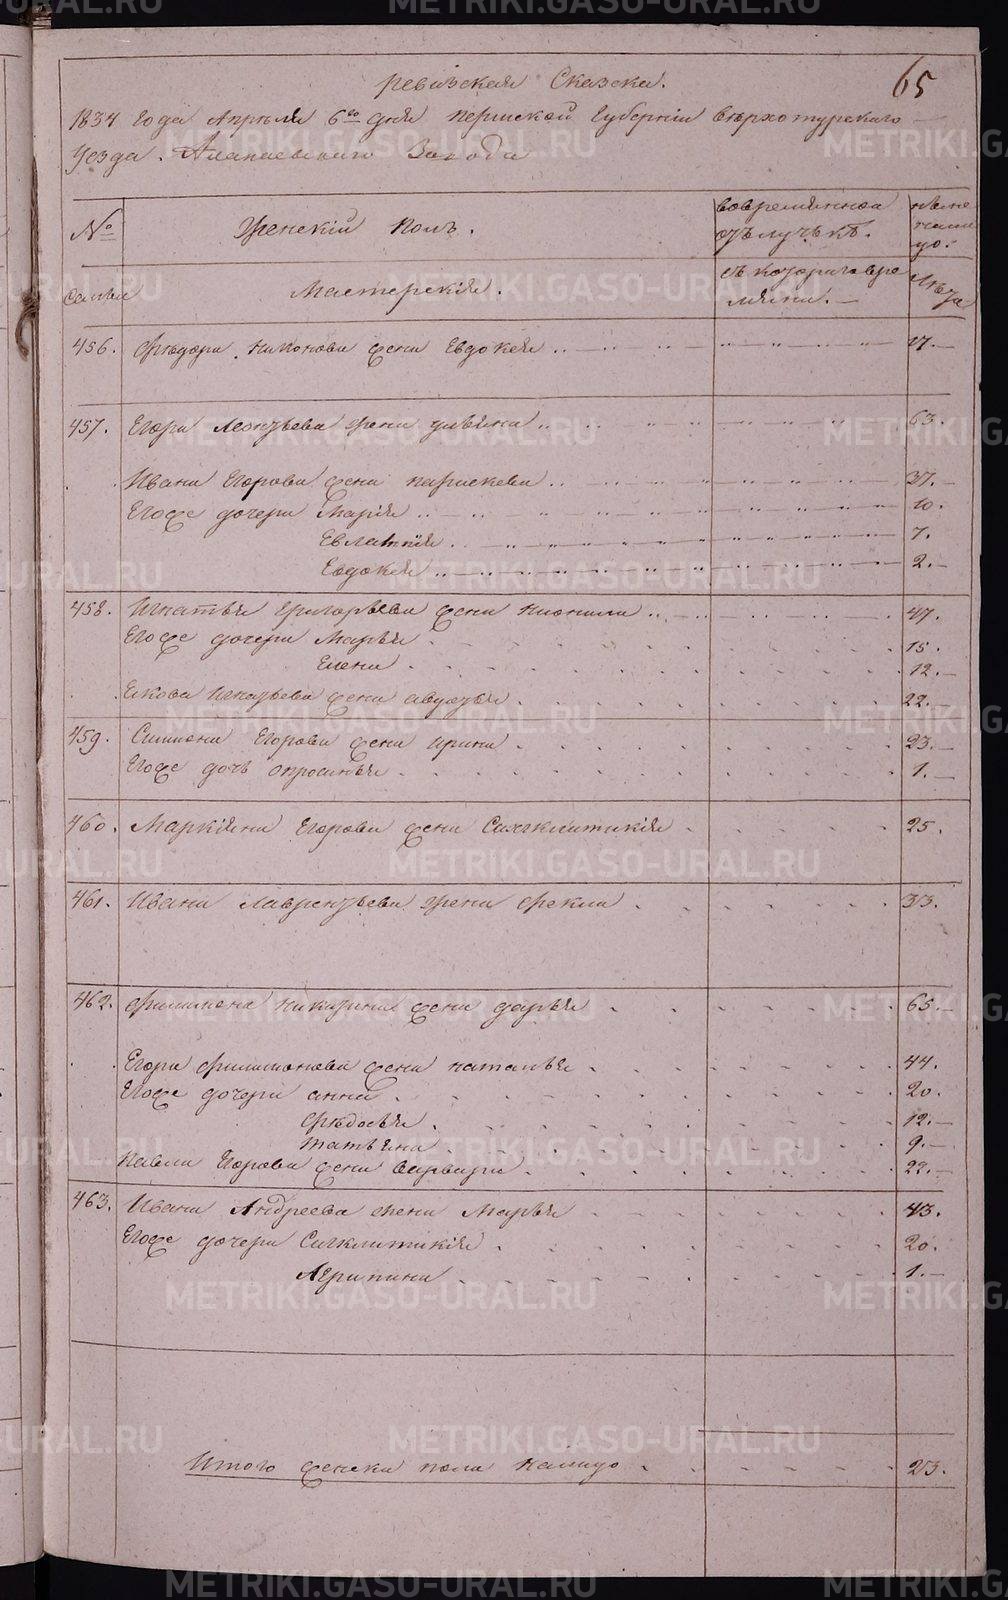 65
Ревизская Сказка.
1834 года Апреля 6го дня Пермской Губернии Верхотурскаго
Уезда. Алапаевскаго Завода
№ Женский полъ. вовременной отълучъкъ. ныне налицо.
Семьи Мастерския. съ котораго времяни. Лета
456. Фьодора Никонова жена Евдокея 27.
457. Егора Леонтьева жена Ульяна 63.
Ивана Егорова жена Парискева 37.
Егоже дочери Мария 10.
Евлампия 7.
Евдокея 2.
458. Игнатья Григорьева жена Неонила 47.
Егоже дочери Марья 15.
Елена 12.
Якова Игнатьева жена Авдотья 22.
459. Симиона Егорова жена Ирина 23.
Егоже дочь Опросинья 1.
460. Маркияна Егорова жена Сигклитикия 25.
461. Ивана Лаврентьева жена Фекла 33.
462. Филимона Никитина жена Дарья 65.
Егора Филимонова жена Наталья 44.
Егоже дочери Анна 20.
Фьдосья 12.
Татьяна 9.
Павла Егорова жена Варвара 22.
463. Ивана Андреева жена Марья 43.
Егоже дочери Сигклитикия 20.
Агрипина 1.
Итого женска пола налицо 23.
METRIKI.GASO-URAL.RU